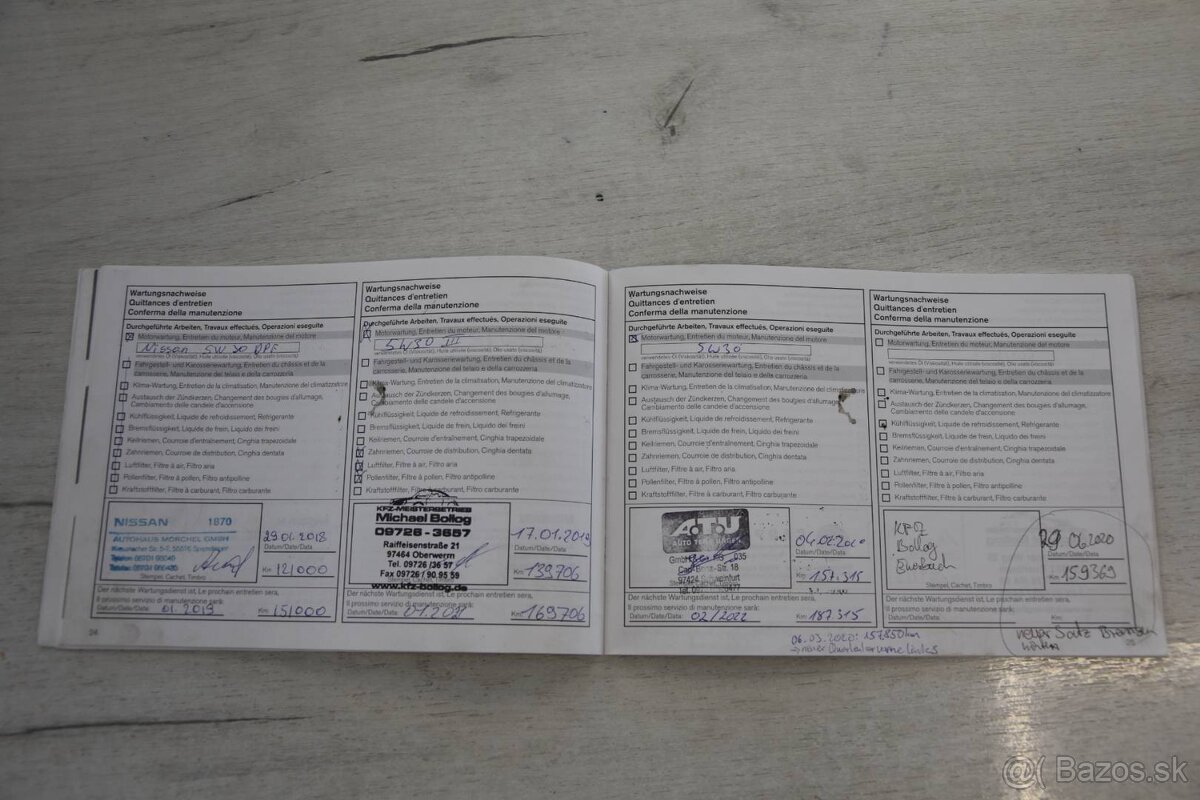 Wartungsnachweise
Quittances d'entretien
Conferma della manutenzione
Durchgeführte Arbeiten, Travaux effectués, Operazioni eseguite
Motorwartung, Entretien du moteur, Manutenzione del motore
Nissan 5W30 DPF
verwendetes Öl (Viskosität), Huile utilisée (viscosité), Olio usato (viscosità)
Fahrgestell- und Karosseriewartung, Entretien du châssis et de la
carrosserie, Manutenzione del telaio e della carrozzeria
Klima-Wartung, Entretien de la climatisation, Manutenzione del climatizzatore
Austausch der Zündkerzen, Changement des bougies d'allumage,
Cambiamento delle candele d'accensione
Kühlflüssigkeit, Liquide de refroidissement, Refrigerante
Bremsflüssigkeit, Liquide de frein, Liquido dei freini
Keilriemen, Courroie d'entraînement, Cinghia trapezoidale
Zahnriemen, Courroie de distribution, Cinghia dentata
Luftfilter, Filtre à air, Filtro aria
Pollenfilter, Filtre à pollen, Filtro antipolline
Kraftstofffilter, Filtre à carburant, Filtro carburante
NISSAN 1870
AUTOHAUS MORCHEL GMBH
Stempel, Cachet, Timbro
29.01.2018
Datum/Date/Data
Km 121000
Der nächste Wartungsdienst ist, Le prochain entretien sera,
Il prossimo servizio di manutenzione sarà:
Datum/Date/Data: 01.2019 Km: 151000
24
Wartungsnachweise
Quittances d'entretien
Conferma della manutenzione
Durchgeführte Arbeiten, Travaux effectués, Operazioni eseguite
Motorwartung, Entretien du moteur, Manutenzione del motore
5W30 III
verwendetes Öl (Viskosität), Huile utilisée (viscosité), Olio usato (viscosità)
Fahrgestell- und Karosseriewartung, Entretien du châssis et de la
carrosserie, Manutenzione del telaio e della carrozzeria
Klima-Wartung, Entretien de la climatisation, Manutenzione del climatizzatore
Austausch der Zündkerzen, Changement des bougies d'allumage,
Cambiamento delle candele d'accensione
Kühlflüssigkeit, Liquide de refroidissement, Refrigerante
Bremsflüssigkeit, Liquide de frein, Liquido dei freini
Keilriemen, Courroie d'entraînement, Cinghia trapezoidale
Zahnriemen, Courroie de distribution, Cinghia dentata
Luftfilter, Filtre à air, Filtro aria
Pollenfilter, Filtre à pollen, Filtro antipolline
Kraftstofffilter, Filtre à carburant, Filtro carburante
KFZ-MEISTERBETRIEB
Michael Bollog
09726 - 3657
Raiffeisenstraße 21
97464 Oberwerrn
Tel. 09726 / 36 57
Fax 09726 / 90 95 59
www.kfz-bollog.de
17.01.2019
Datum/Date/Data
Km 139706
Der nächste Wartungsdienst ist, Le prochain entretien sera,
Il prossimo servizio di manutenzione sarà:
Datum/Date/Data: 01.2021 Km: 169706
Wartungsnachweise
Quittances d'entretien
Conferma della manutenzione
Durchgeführte Arbeiten, Travaux effectués, Operazioni eseguite
Motorwartung, Entretien du moteur, Manutenzione del motore
5W30
verwendetes Öl (Viskosität), Huile utilisée (viscosité), Olio usato (viscosità)
Fahrgestell- und Karosseriewartung, Entretien du châssis et de la
carrosserie, Manutenzione del telaio e della carrozzeria
Klima-Wartung, Entretien de la climatisation, Manutenzione del climatizzatore
Austausch der Zündkerzen, Changement des bougies d'allumage,
Cambiamento delle candele d'accensione
Kühlflüssigkeit, Liquide de refroidissement, Refrigerante
Bremsflüssigkeit, Liquide de frein, Liquido dei freini
Keilriemen, Courroie d'entraînement, Cinghia trapezoidale
Zahnriemen, Courroie de distribution, Cinghia dentata
Luftfilter, Filtre à air, Filtro aria
Pollenfilter, Filtre à pollen, Filtro antipolline
Kraftstofffilter, Filtre à carburant, Filtro carburante
A.T.U
AUTO TEILE UNGER
97424 Schweinfurt
04.02.2020
Datum/Date/Data
Km 157.315
Der nächste Wartungsdienst ist, Le prochain entretien sera,
Il prossimo servizio di manutenzione sarà:
Datum/Date/Data: 02/2022 Km: 187315
06.03.2020: 157.850km
→ neuer Querlenker vorne links
Wartungsnachweise
Quittances d'entretien
Conferma della manutenzione
Durchgeführte Arbeiten, Travaux effectués, Operazioni eseguite
Motorwartung, Entretien du moteur, Manutenzione del motore
verwendetes Öl (Viskosität), Huile utilisée (viscosité), Olio usato (viscosità)
Fahrgestell- und Karosseriewartung, Entretien du châssis et de la
carrosserie, Manutenzione del telaio e della carrozzeria
Klima-Wartung, Entretien de la climatisation, Manutenzione del climatizzatore
Austausch der Zündkerzen, Changement des bougies d'allumage,
Cambiamento delle candele d'accensione
Kühlflüssigkeit, Liquide de refroidissement, Refrigerante
Bremsflüssigkeit, Liquide de frein, Liquido dei freini
Keilriemen, Courroie d'entraînement, Cinghia trapezoidale
Zahnriemen, Courroie de distribution, Cinghia dentata
Luftfilter, Filtre à air, Filtro aria
Pollenfilter, Filtre à pollen, Filtro antipolline
Kraftstofffilter, Filtre à carburant, Filtro carburante
KFZ
Bollog
Stempel, Cachet, Timbro
29.06.2020
Datum/Date/Data
Km 159369
Der nächste Wartungsdienst ist, Le prochain entretien sera,
Il prossimo servizio di manutenzione sarà:
Datum/Date/Data: Km:
neuer Satz Bremsen
@( Bazos.sk